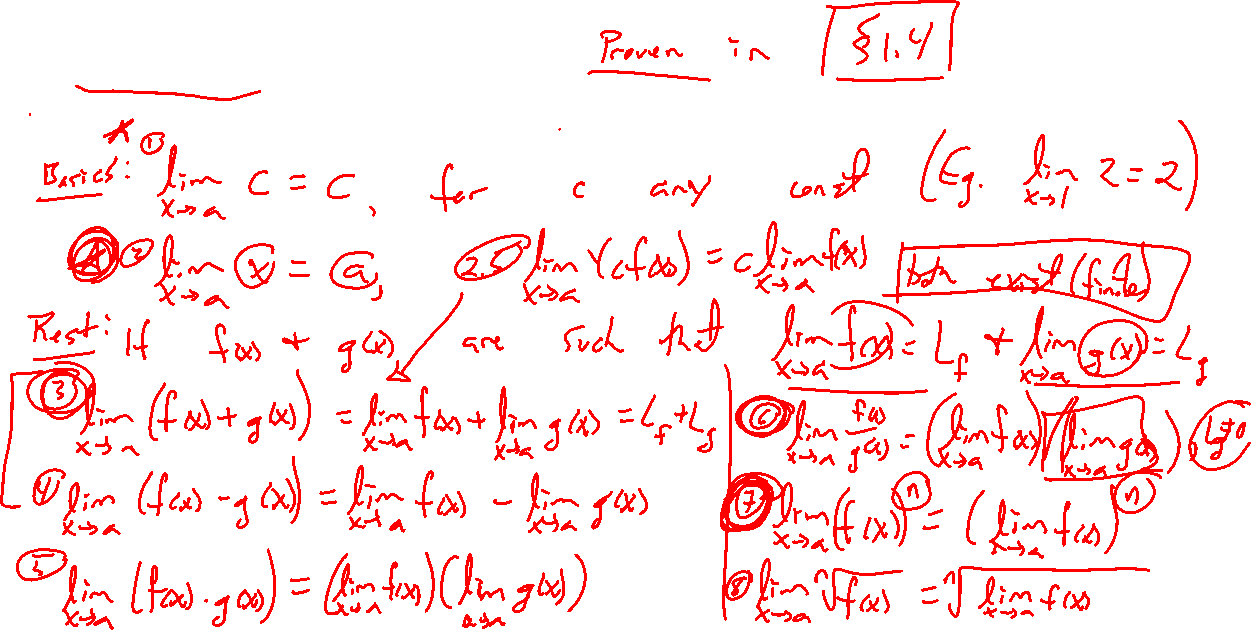 Proven in §1.4
Basics: ① lim x→a c = c, for c any const (Eg. lim x→1 2 = 2)
② lim x→a x = a, 2.5 lim x→a (cf(x)) = c lim x→a f(x) both exist (finite)
Rest: If f(x) + g(x) are such that lim x→a f(x) = L_f + lim x→a g(x) = L_g
③ lim x→a (f(x) + g(x)) = lim x→a f(x) + lim x→a g(x) = L_f + L_g
④ lim x→a (f(x) - g(x)) = lim x→a f(x) - lim x→a g(x)
⑤ lim x→a (f(x) · g(x)) = (lim x→a f(x)) (lim x→a g(x))
⑥ lim x→a f(x)/g(x) = (lim x→a f(x)) / (lim x→a g(x)), L_g ≠ 0
⑦ lim x→a (f(x))^n = (lim x→a f(x))^n
⑧ lim x→a ⁿ√f(x) = ⁿ√lim x→a f(x)